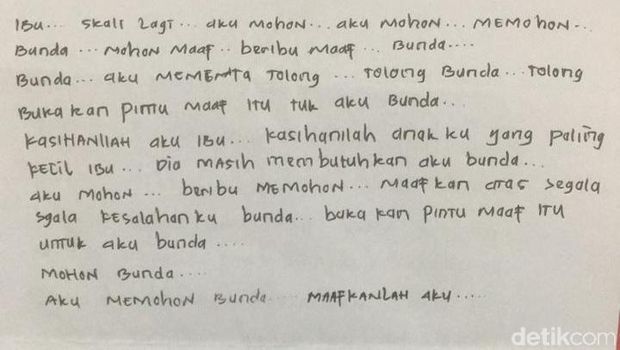 IBU... SKALI LAGI... AKU MOHON... AKU MOHON... MEMOHON...
Bunda... MOHON MAAF.. beribu MAAF... Bunda....
Bunda... AKU MEMENTA TOLONG ... TOLONG Bunda... TOLONG
BUKA KAN PINTU MAAF ITU TUK AKU BUNDA...
KASIHANILAH AKU IBU... Kasihanilah anak ku yang paling
KECIL IBU... DIA MASIH membutuhkan aku bunda...
AKU MOHON... beribu MEMOHON... MAAFKAN atas segala
sgala KESALAHAN KU bunda... buka kan PINTU MAAF ITU
UNTUK AKU bunda ....
MOHON Bunda....
AKU MEMOHON Bunda.... MAAFKANLAH AKU.....
detikcom